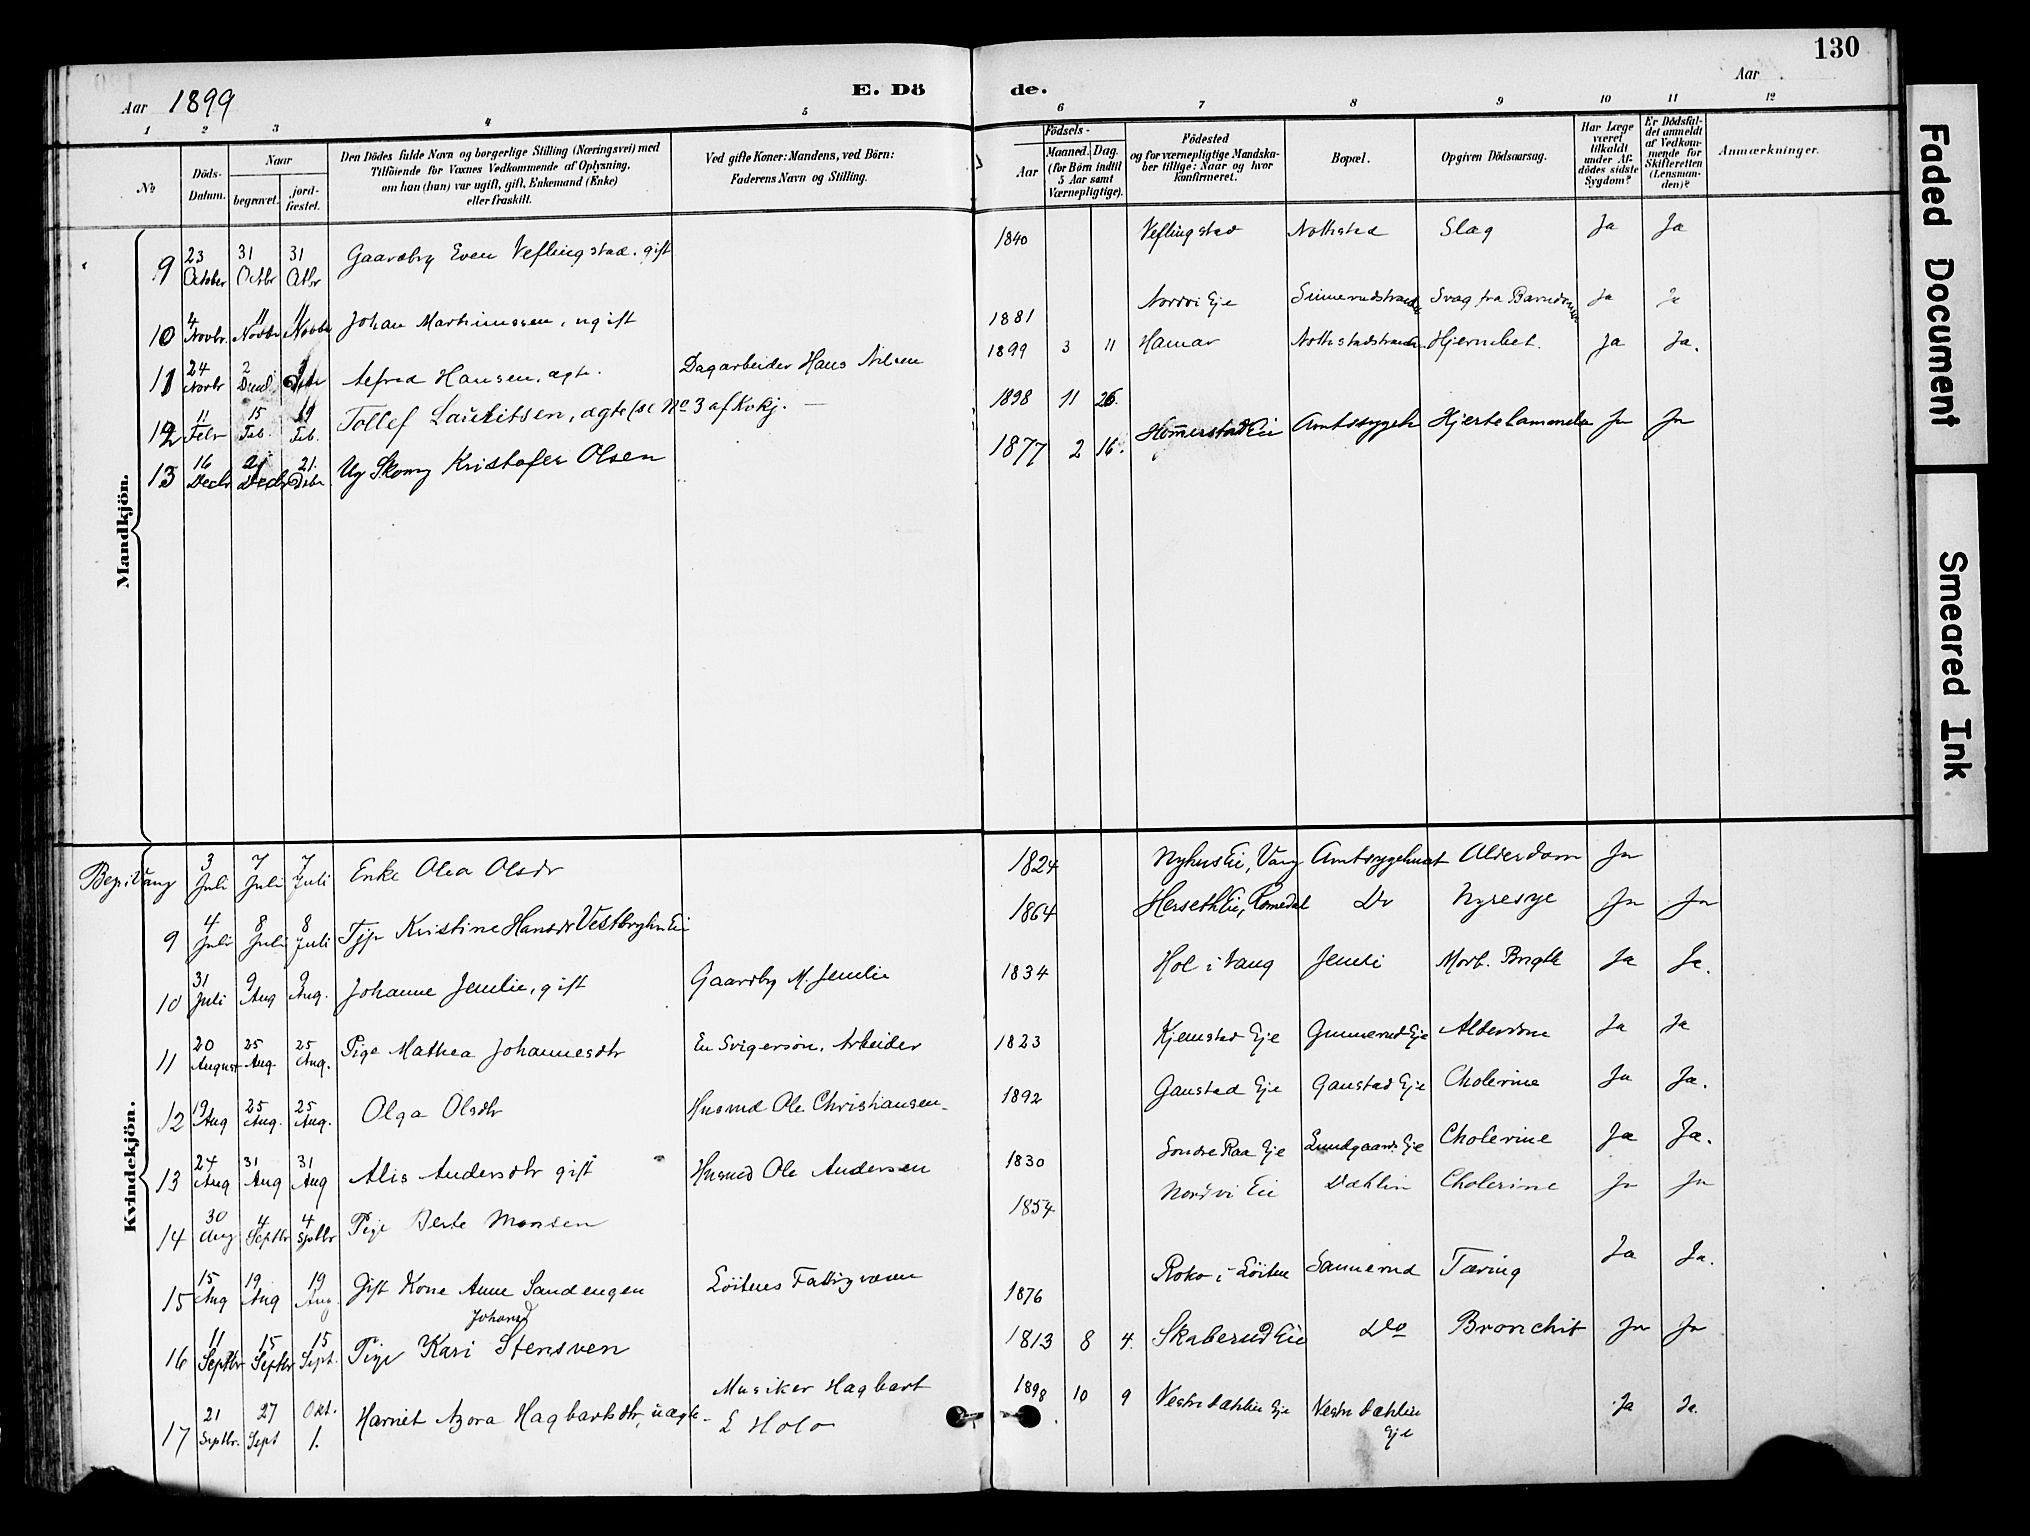 130
Aar 1899
E. Dö
de.
Aar
1 2 3 4 5 6 7 8 9 10 11 12
No
Döds-Datum.
Naar
begravet.
jord-fæstet.
Den Dödes fulde Navn og borgerlige Stilling (Næringsvei) med
Tilföiende for Voxnes Vedkommende af Oplysning,
om han (hun) var ugift, gift, Enkemand (Enke)
eller fraskilt.
Ved gifte Koner: Mandens, ved Børn:
Faderens Navn og Stilling.
Födsels-
Aar
Maaned. Dag.
(for Börn indtil
5 Aar samt
Værnepligtige).
Födested
og for værnepligtige Mandska-
ber tillige: Naar og hvor
konfirmeret.
Bopæl.
Opgiven Dödsaarsag.
Har Læge
været
tilkaldt
under Af-
dödes sidste
Sygdom?
Er Dödsfal-
det anmeldt
af Vedkom-
mende for
Skifteretten
(Lensman-
den)?
Anmærkninger.
Mandkjön.
9 23 October 31 Octbr 31 Octbr Gaardbrg Even Veflingstad. gift 1840 Veflingstad Nothstad Slag Ja Ja
10 4 Novbr. 11 Novbr 11 Novbr Johan Martinussen, ugift 1881 Nordvi Eje Svag fra Barndommen Ja Ja
11 24 Novbr 2 Alfred Hansen, ægte. Dagarbeider Hans Nilsen 1899 3 11 Hamar Hjernebet. Ja Ja.
12 11 Febr 15 Feb. 19 Feb. Tollef Lauritsen, ægte (se No 3 af Kvkj. 1898 11 26.
13 16 Decbr 21 Decbr 21. Debr Ug Skomg Kristofer Olsen 1877 2 16. Hommerstad Eie Amtssygeh Hjertelammelse Ja Ja
Kvindekjön.
Beg. i Vang 3 Juli 7 Juli 7 Juli Enke Olea Olsdr 1824 Nyhus Ei, Vang Amtsygehuset Alderdom Ja
9 4 Juli 8 Juli 8 Juli Tjp Kristine Hansdr Vestbryhn Ei 1864 Herseth Eie, Romedal Do Nyresyge Ja Ja
10 31 Juli 9 Aug 9 Aug. Johanne Jemlie, gift Gaardbg M. Jemlie 1834 Hol i Vang Jemli Morb. Brigth Ja Ja.
11 20 August 25 Aug. 25 Aug. Pige Mathea Johannesdtr En Svigersøn. Arbeider 1823 Kjemstad Eje Gunnerud Eje Alderdom Ja Ja
12 19 Aug 25 Aug. 25 Aug. Olga Olsdtr Husmd Ole Christiansen. 1892 Gaustad Eje Gaustad Eje Cholerine Ja Ja.
13 24 Aug 31 Aug 31 Aug Alis Andersdtr gift Husmd Ole Andersen 1830 Søndre Raa Eje Lundgaards Eje Cholerine Ja Ja.
14 30 Aug 4 Septbr 4 Septbr Pige Berte Monsen 1854 Nordvi Eie Dæhlin Cholerine Ja Ja
15 15 Aug 19 Aug 19 Aug Gift Kone Anne Sandengen Løitens Fattigvæsen 1876 Roko i Løiten Sannerud Tæring Ja Ja.
16 11 Septbr 15 Septbr 15 Sept. Pige Kari Johansd Stensven 1813 8 4. Skaberud Eie Do Bronchit Ja Ja
17 21 Septbr. 27 Sept Okt. 1. Harriet Azora Hagbartsdtr, uægte. Musiker Hagbart E Holo 1898 10 9 Vestre Dæhlin Eje Vestre Dæhlin Eje Ja Ja.
Faded Document
Smeared Ink